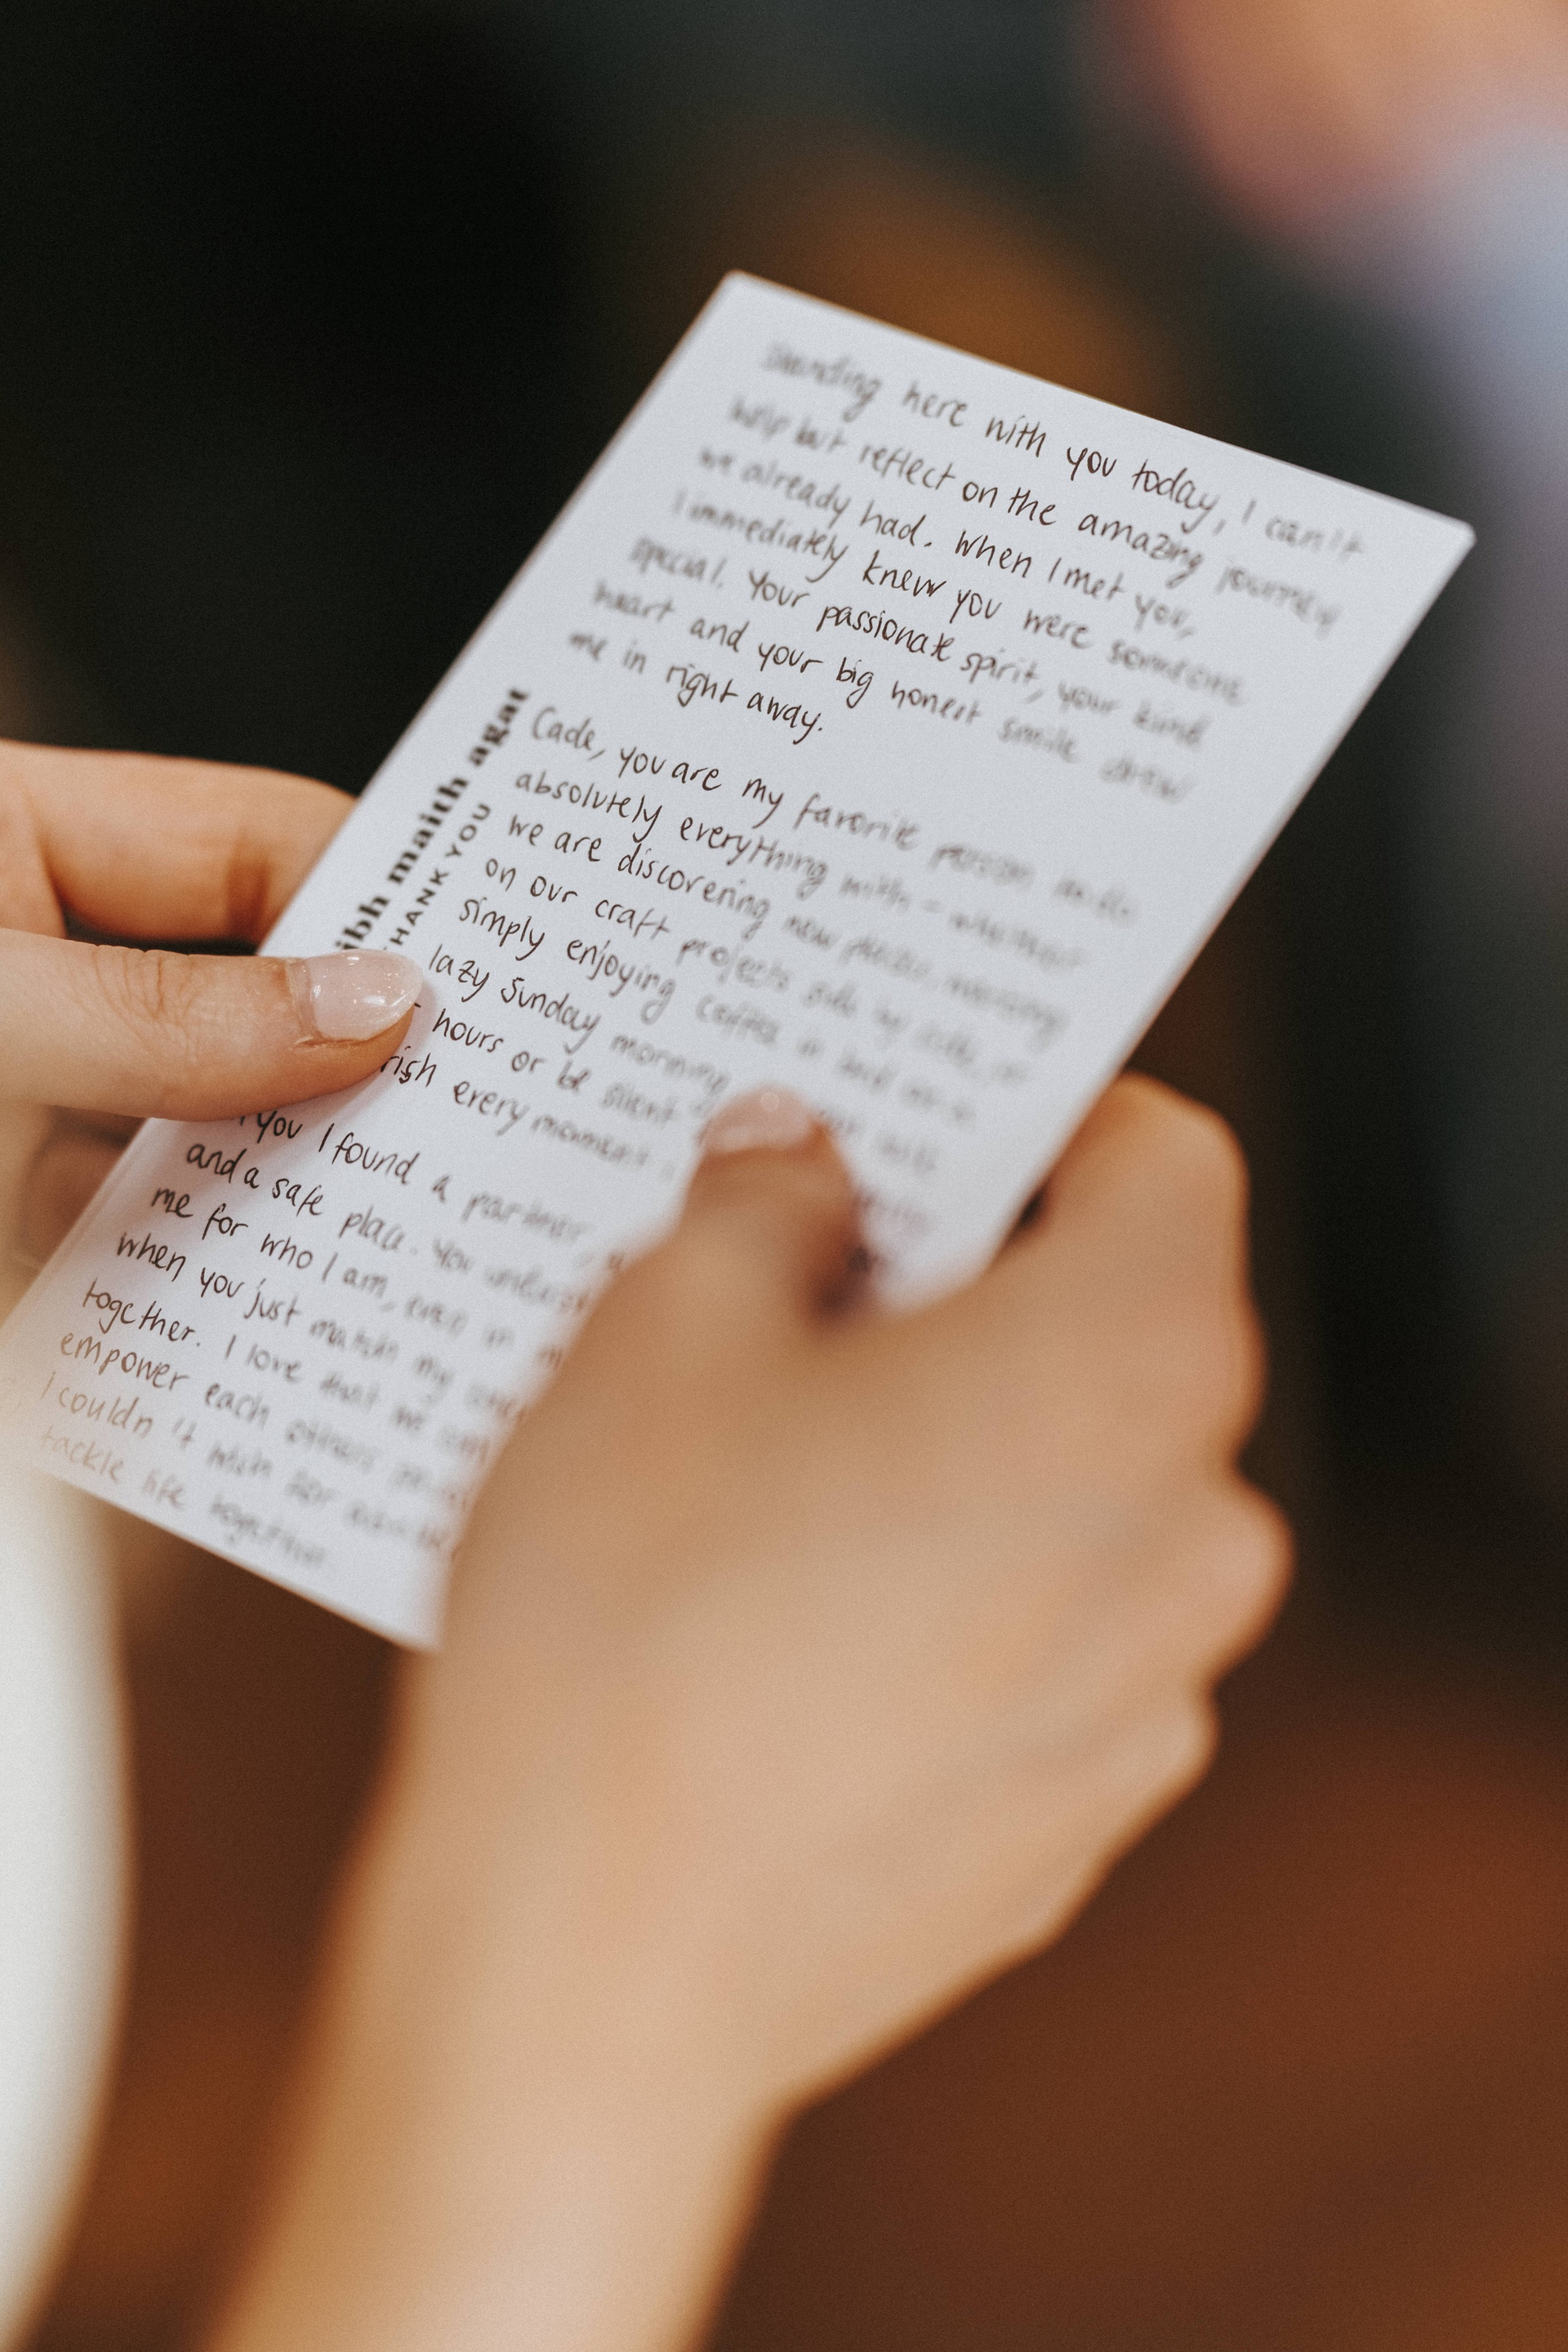 Standing here with you today, I can't
help but reflect on the amazing journey
we already had. When I met you,
I immediately knew you were someone
special. Your passionate spirit, your kind
heart and your big honest smile drew
me in right away.
Cade, you are my favorite person to do
absolutely everything with – whether
we are discovering new places, working
on our craft projects side by side, or
simply enjoying coffee in bed on a
lazy Sunday morning
hours or be silent
rish every moment
you I found a partner,
and a safe place. You
me for who I am, even in
when you just match my
together. I love that we
empower each others
I couldn't wish for
tackle life together.
ibh maith agat
THANK YOU